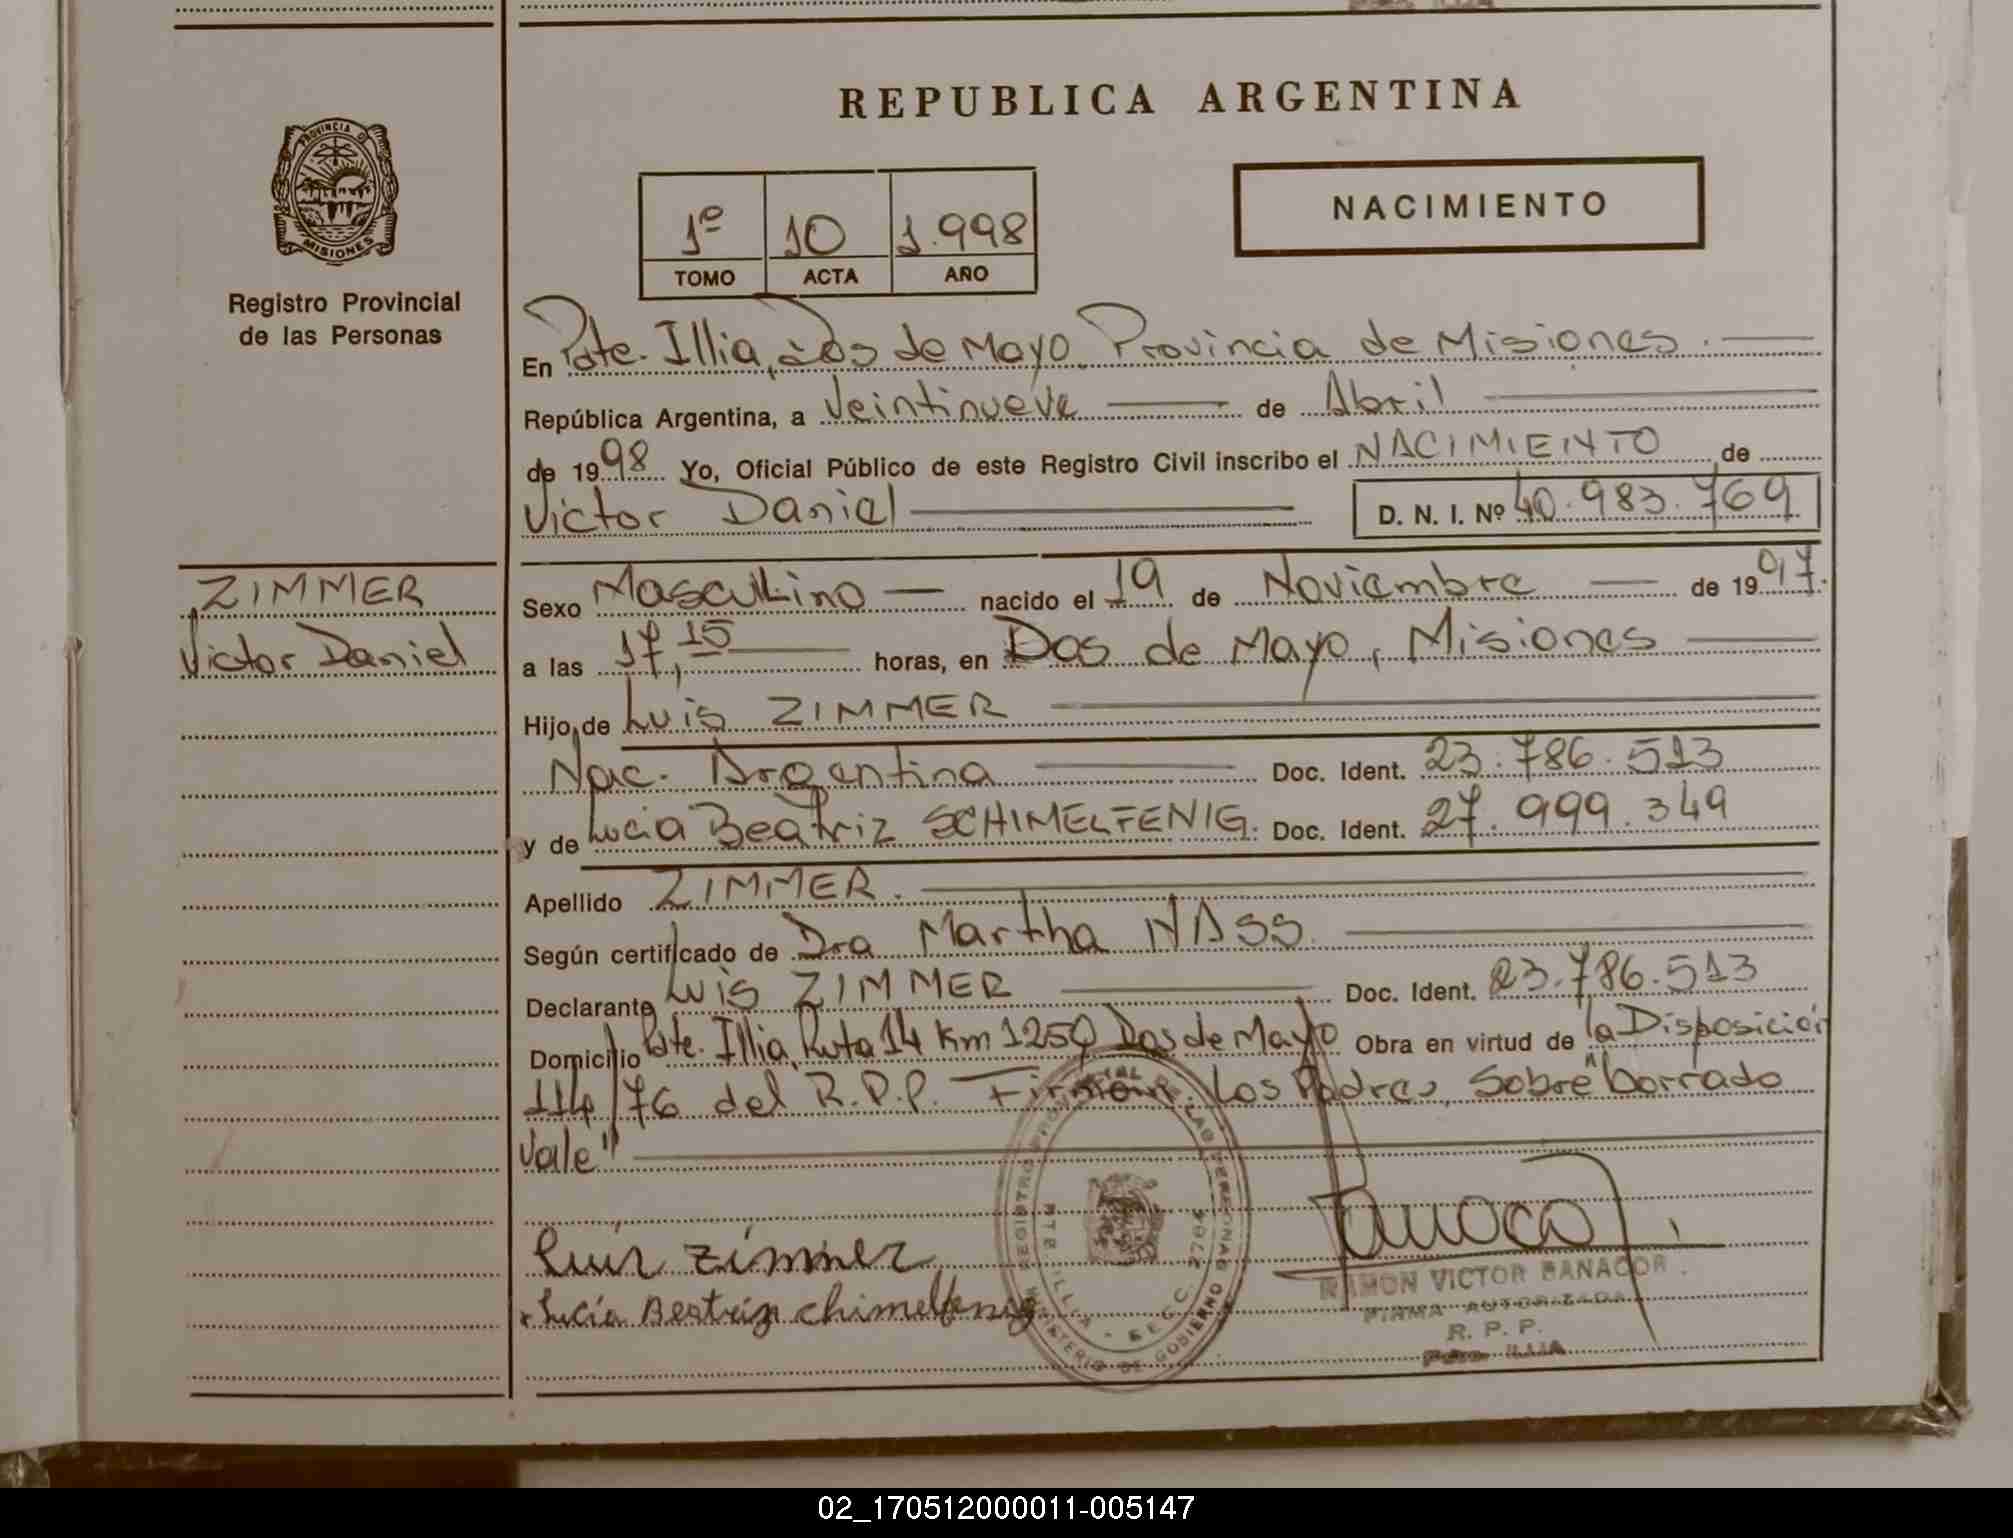 REPUBLICA ARGENTINA
PROVINCIA DE
MISIONES
Registro Provincial
de las Personas
1º 10 1.998
TOMO ACTA AÑO
NACIMIENTO
En Pdte. Illia, Dos de Mayo, Provincia de Misiones.
República Argentina, a Veintinueve de Abril
de 1998 Yo, Oficial Público de este Registro Civil inscribo el NACIMIENTO de
Victor Daniel D. N. I. Nº 40.983.769
ZIMMER
Victor Daniel
Sexo Masculino nacido el 19 de Noviembre de 1997.
a las 17,15 horas, en Dos de Mayo, Misiones
Hijo de Luis ZIMMER
Nac. Argentina Doc. Ident. 23.786.513
y de Lucia Beatriz SCHIMELFENIG. Doc. Ident. 27.999.349
Apellido ZIMMER.
Según certificado de Dra Martha NASS.
Declarante Luis ZIMMER Doc. Ident. 23.786.513
Domicilio Pdte. Illia, Ruta 14 Km 1250, Dos de Mayo Obra en virtud de la Disposición
114/76 del R.P.P. Firman: Los Padres, Sobre "borrado
Vale"
Luis Zimmer
Lucía Beatriz chimelfenig
REGISTRO PROVINCIAL DE LAS PERSONAS
MINISTERIO DE GOBIERNO
PTE ILLIA - SECC. 2704
RAMON VICTOR BANACOR
FIRMA AUTORIZADA
R. P. P.
Pdte. ILLIA
02_170512000011-005147